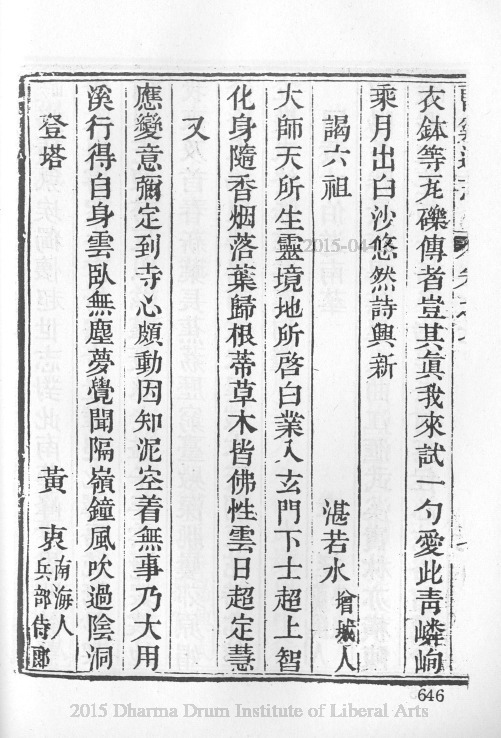 衣鉢等瓦礫傳者豈其眞我來試一勺愛此靑嶙峋
乘月出白沙悠然詩興新
謁六祖 湛若水 增城人
大師天所生靈境地所啓白業入玄門下士超上智
化身隨香烟落葉歸根蒂草木皆佛性雲日超定慧
又
應變意彌定到寺心頗動因知泥空着無事乃大用
溪行得自身雲臥無塵夢覺聞隔嶺鐘風吹過陰洞
登塔 黃衷 南海人兵部侍郎
646
2015 Dharma Drum Institute of Liberal Arts